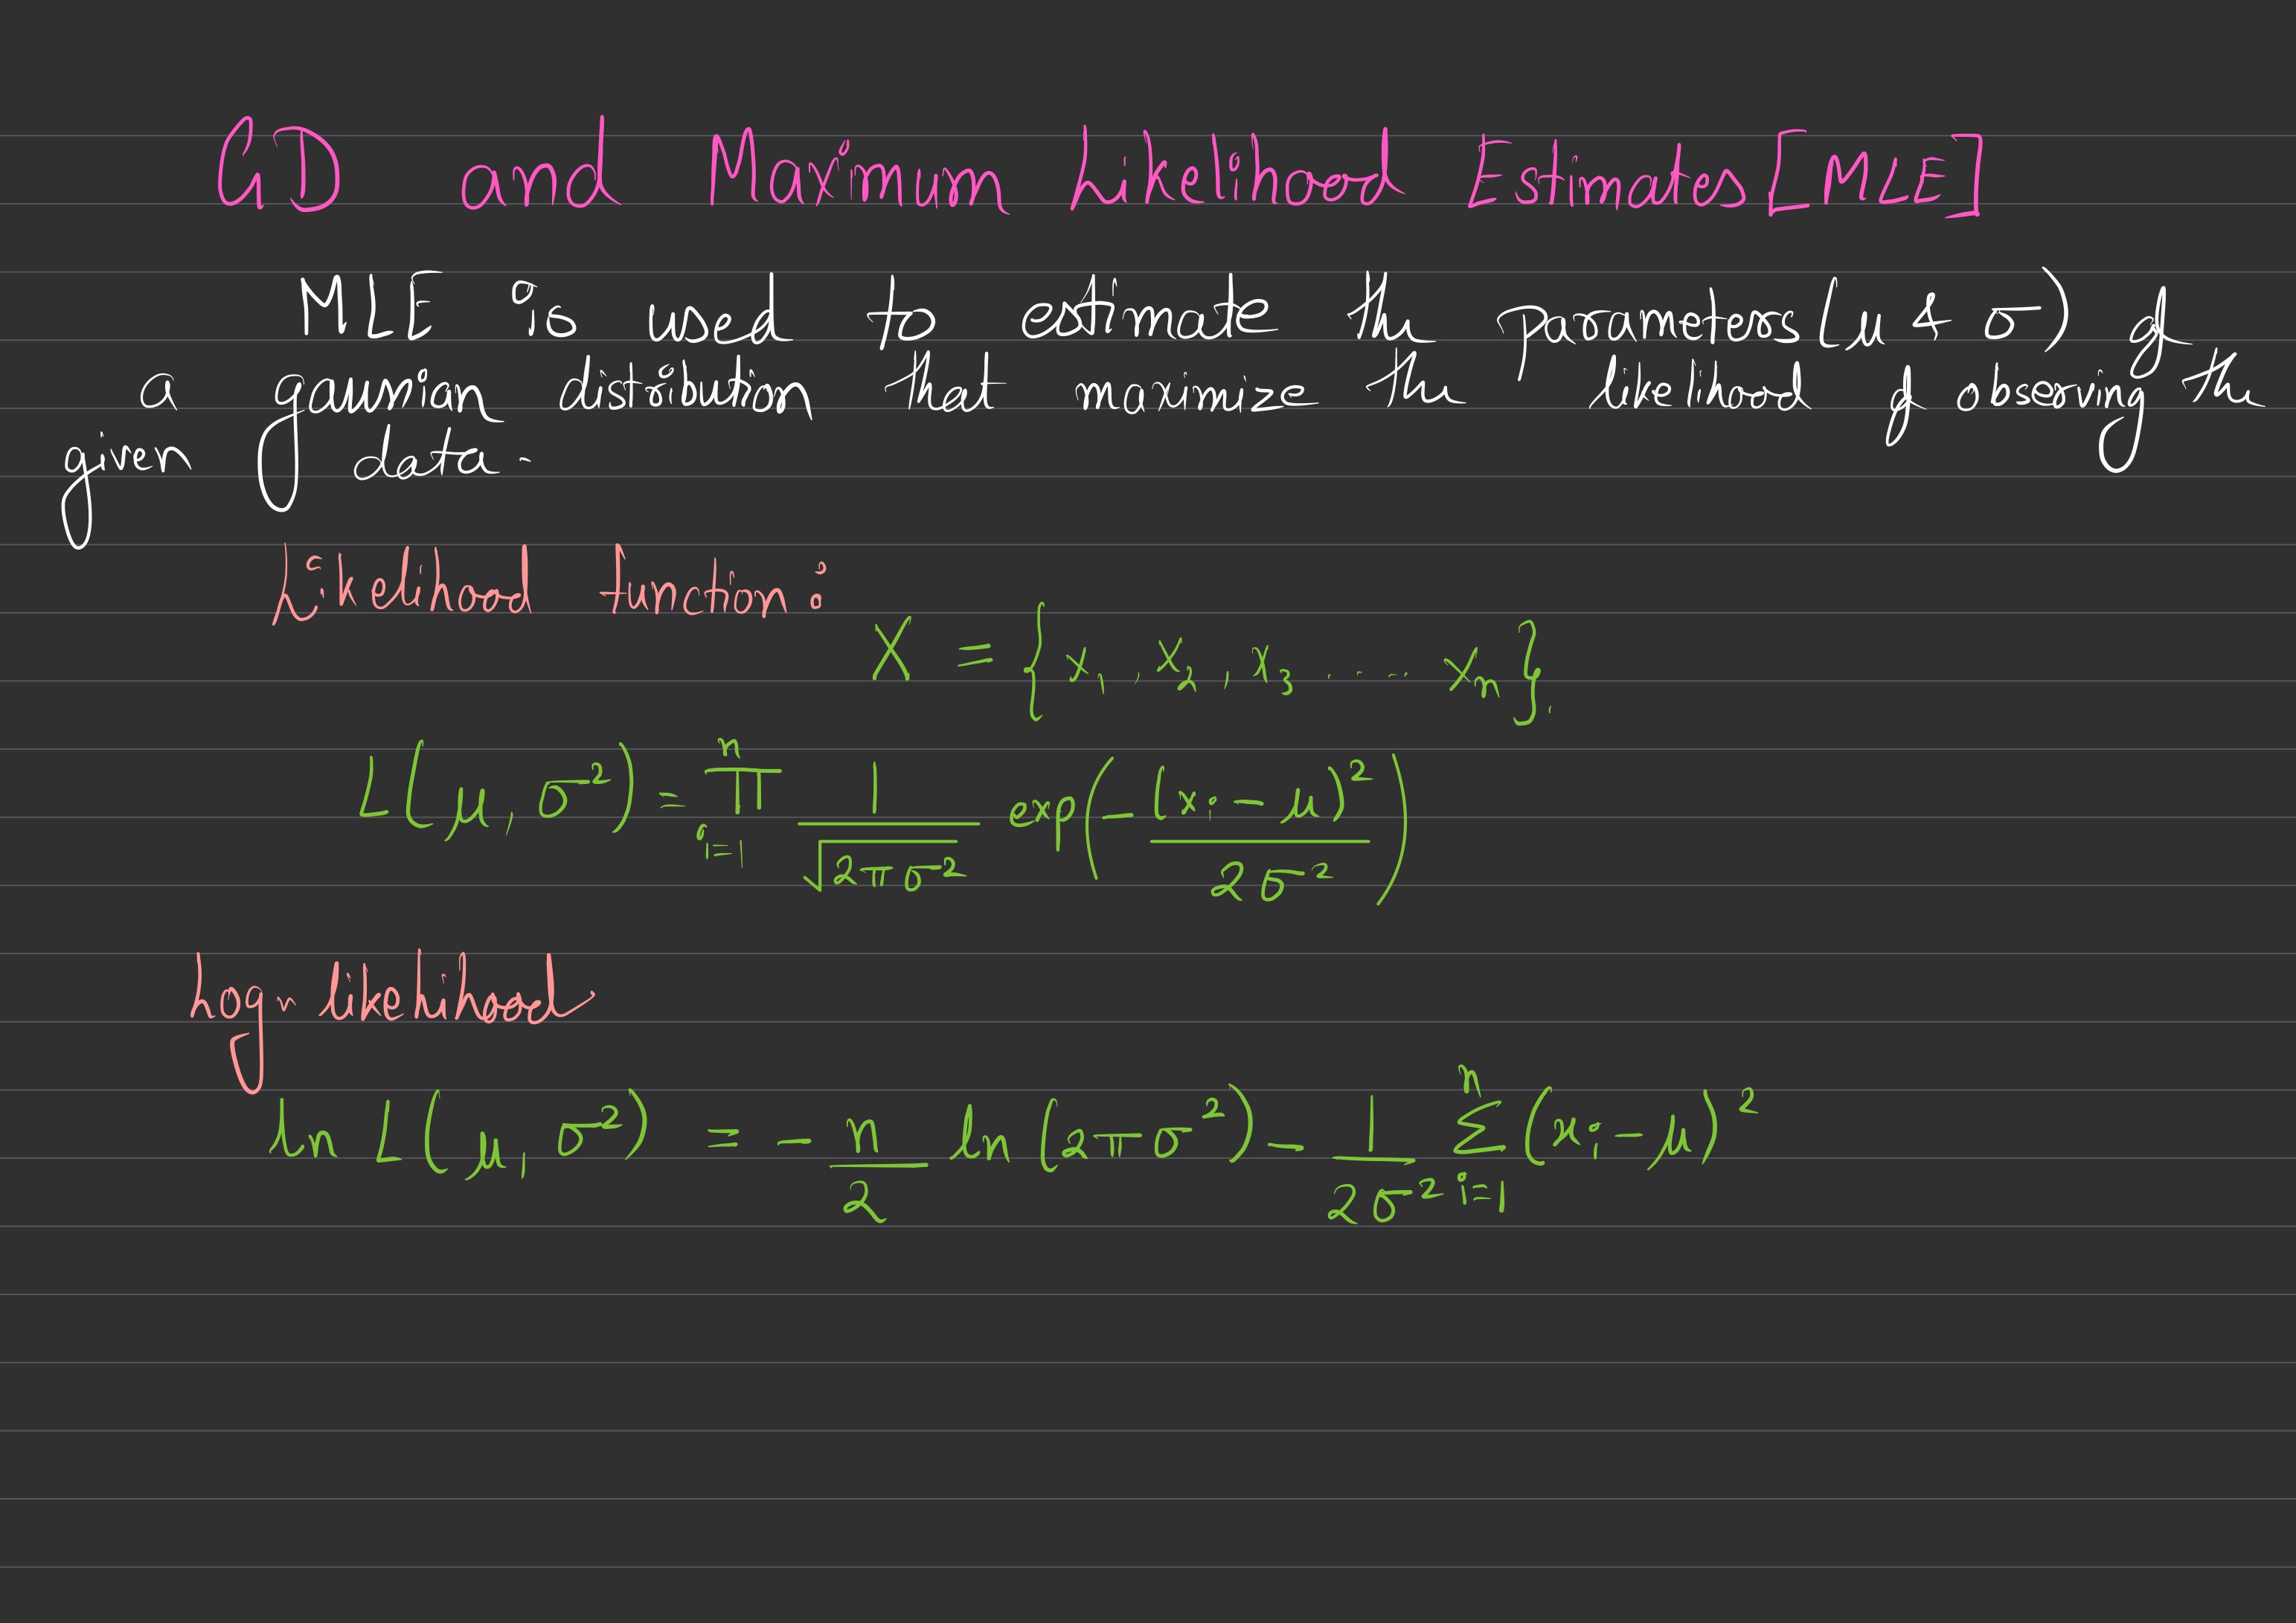 GD and Maximum Likelihood Estimator [MLE]
MLE is used to estimate the parameters (μ & σ) of
a gaussian distribution that maximize the likelihood of observing the
given data.
Likelihood function:
X = {x₁, x₂, x₃ ..... xₙ}.
L(μ, σ²) = ∏ᵢ₌₁ⁿ 1/√(2πσ²) exp(-(xᵢ - μ)²/2σ²)
Log-likelihood
ln L(μ, σ²) = - n/2 ln(2πσ²) - 1/2σ² Σᵢ₌₁ⁿ (xᵢ - μ)²